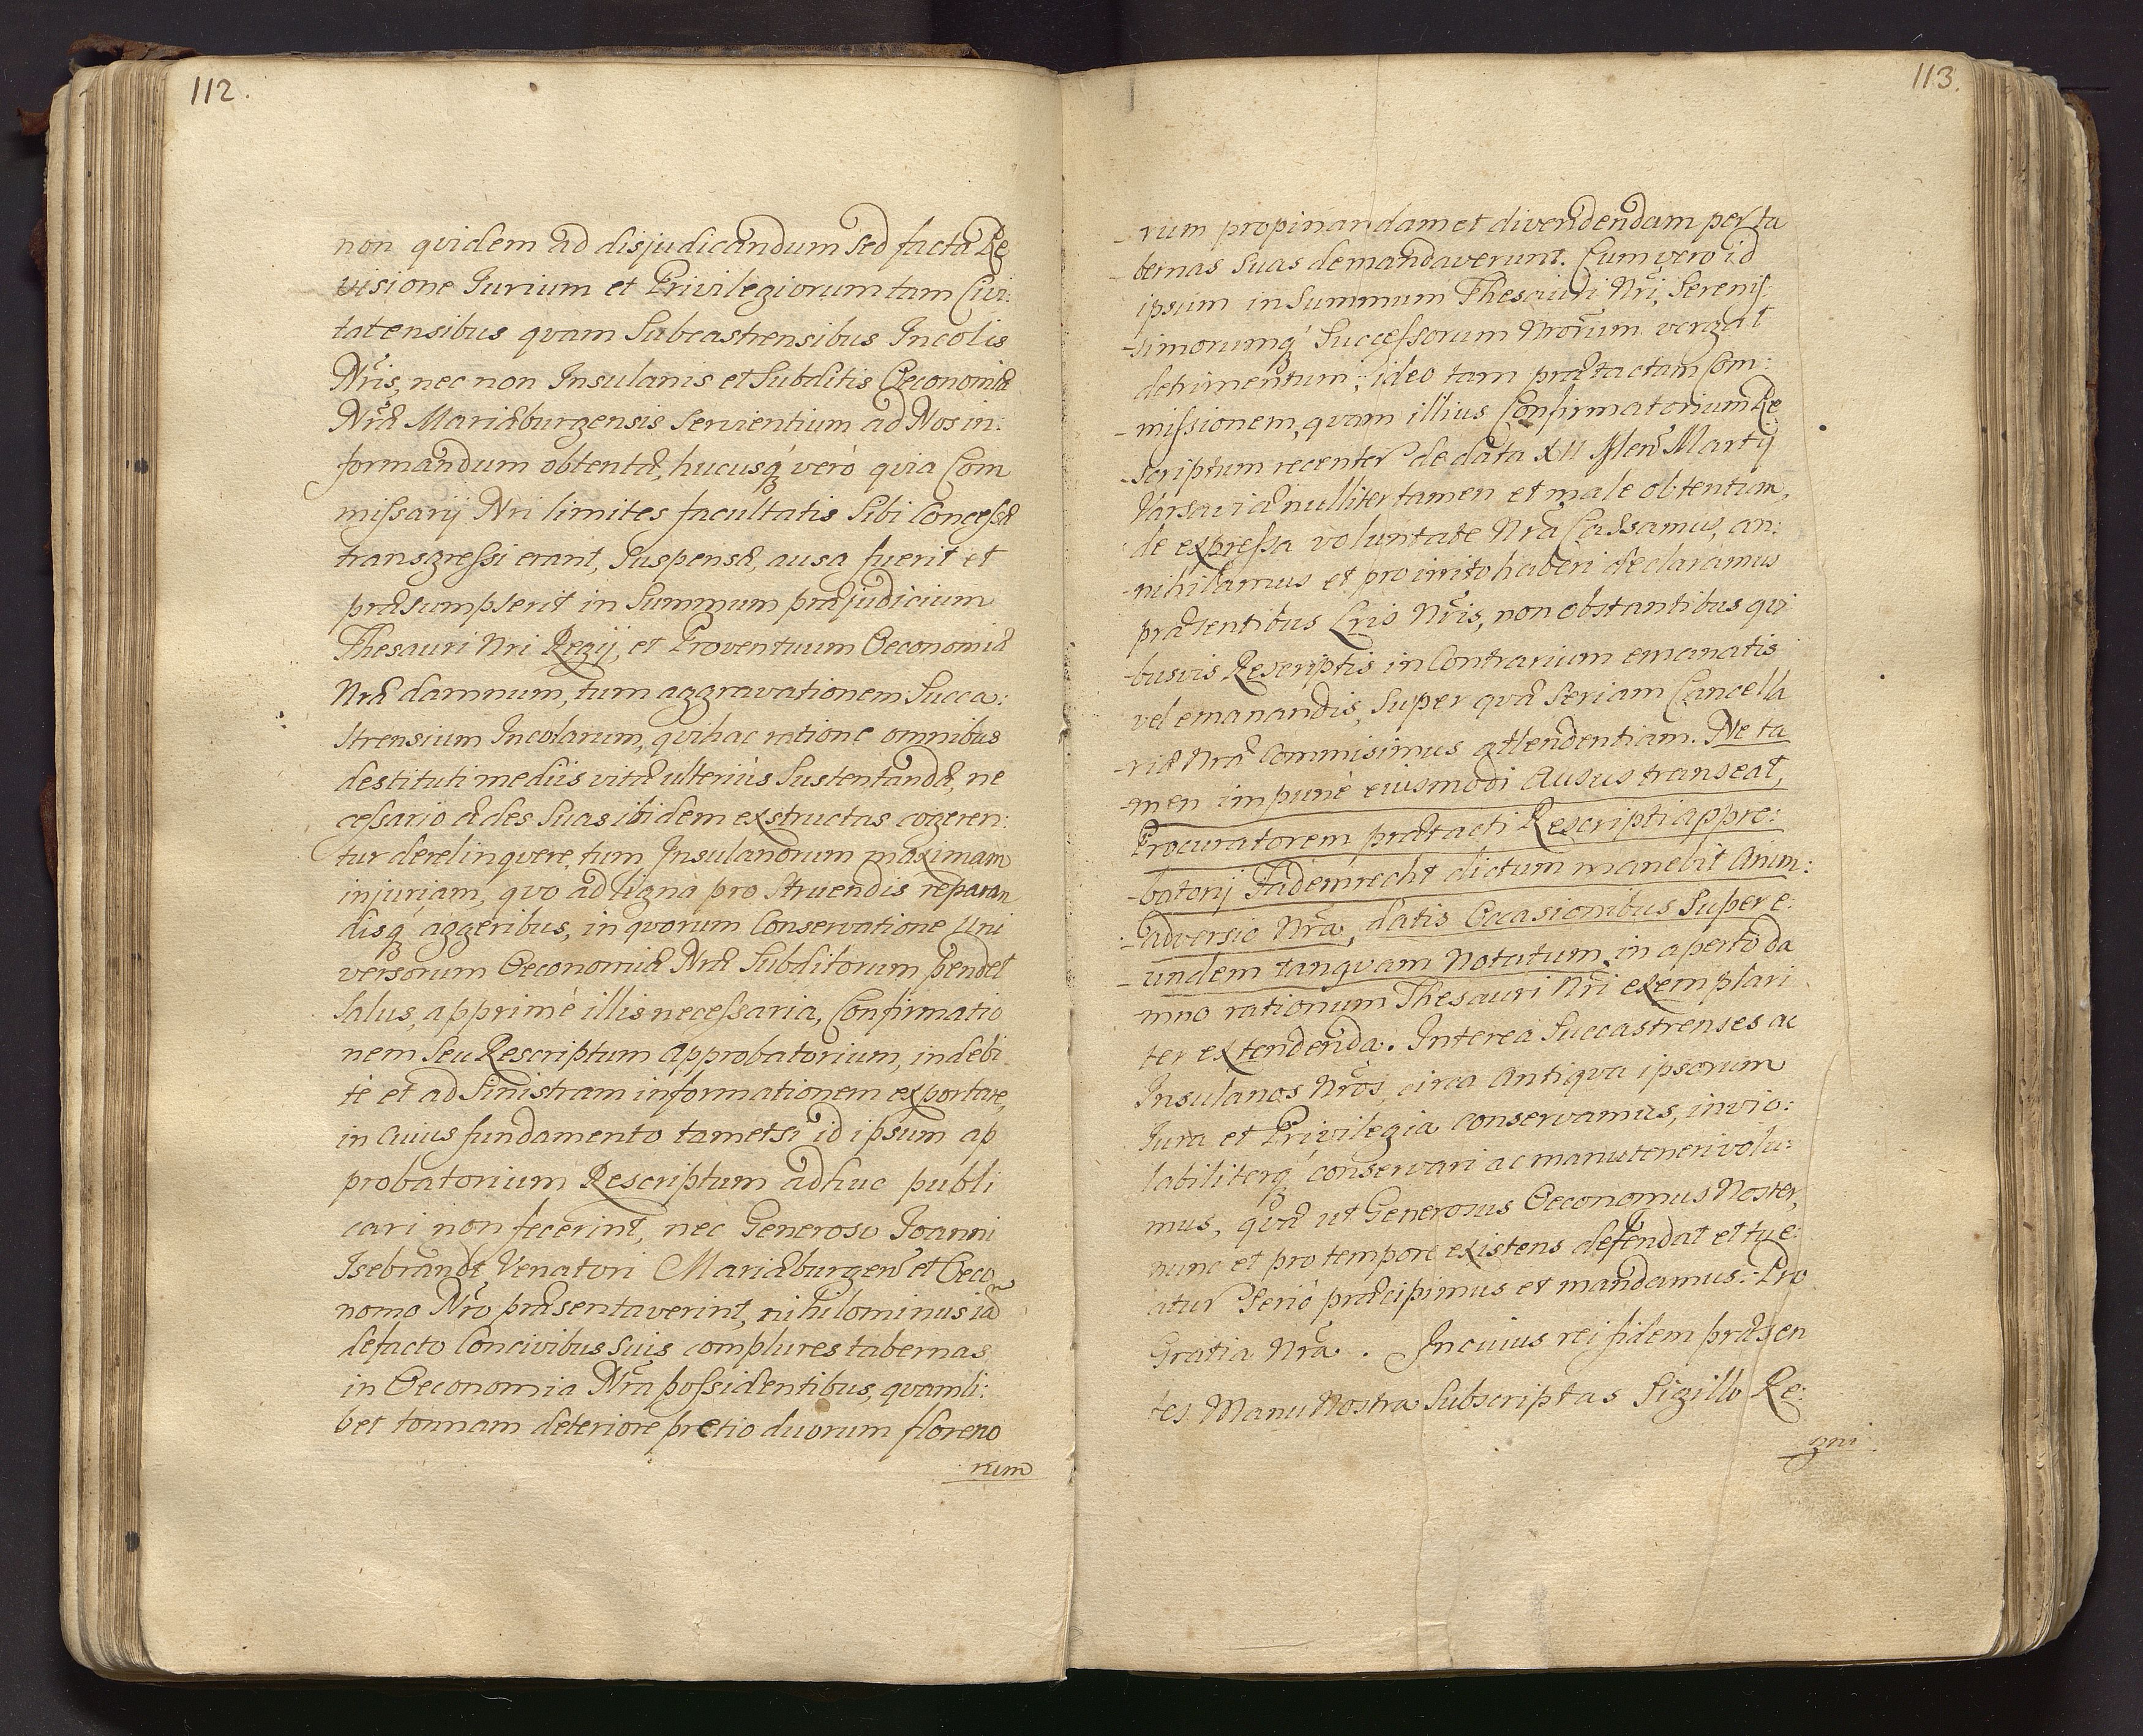 112.
non quidem ad disjudicandum sed facta Re
visione Jurium et Privilegiorum tam Civi:
tatensibus quam Subcastrensibus Incolis
Nr̃is, nec non Insulanis et Subditis Oeconomiæ
Nr̃æ Mariæburgensis Servientium ad Nos in:
formandum obtentæ, hucusq́ꝫ verò quia Com
missarij Nr̃i limites facultatis Sibi Concessæ
transgressi erant, Suspensæ, ausa fuerit et
præsumpserit in Summum præjudicium
Thesauri Nr̃i Regij, et Proventuum Oeconomiæ
Nr̃æ damnum, tum aggravationem Succa:
strensium Incolarum, qui hac ratione omnibus
destituti mediis vitæ ulteriùs Sustentandæ, ne
cessario ædes Suas ibidem exstructas cogeren:
tur derelinquere, tum Insulanorum maximam
injuriam, quo ad ligna pro Struendis reparan
disq́ꝫ aggeribus, in quorum Conservatione Uni
versorum Oeconomiæ Nr̃æ Subditorum pendet
Salus, apprimè illis necessaria, Confirmatio
nem Seu Rescriptum Approbatorium, indebi
tè et ad Sinistram informationem exportare,
in cuius fundamento tametsi id ipsum ap
probatorium Rescriptum adhuc publi
cari non fecerint, nec Generoso Joanni
Isebrandt Venatori Mariæburgen̄ et Oeco
nomo Nr̃o præsentaverint, nihilominus id
defacto Concivibus Suis complures tabernas
in Oeconomia Nr̃a possidentibus, quamli:
bet tonnam deteriore pretio duorum floreno
rum
113.
rum propinandam et divendendam per ta
bernas Suas demandaverunt. Cum vero id
ipsum in Summum Thesauri Nr̃i, Serenis:
simorumq́ꝫ Successorum Nr̃orum vergat
detrimentum, ideo tam prætactam Com:
missionem, quam illius Confirmatorium Re
scriptum recenter de data XII Men̄ Martij
Varsaviæ nulliter tamen et male obtentum,
de expressa voluntate Nr̃a Cassamus, an:
nihilamus et pro irrito haberi declaramus
præsentibus Lr̃is Nr̃is, non obstantibus qui
busvis Rescriptis in Contrarium emanatis
vel emanandis, Super quæ Seriam Cancella
riæ Nr̃æ Commisimus attendentiam. Ne ta
men impunè eiusmodi Ausus transeat,
Procuratorem prætacti Rescripti appro:
batorij Fademrecht dictum manebit Anim:
adversio Nr̃a, datis Occasionibus Super e:
undem tanquam Notatum, in aperto da
mno rationum Thesauri Nr̃i exemplari
ter extendenda. Interea Succastrenses ac
Insulanos Nr̃os, circa Antiqua ipsorum
Jura et Privilegia conservamus, invio:
labiliterq́ꝫ conservari ac manuteneri volu:
mus, quæ ut Generosus Oeconomus Noster,
nunc et pro tempore existens defendat et tue:
atur Seriò præcipimus et mandamus: Pro
Gratia Nr̃a. In cuius rei fidem præsen
tes Manu Nostra Subscriptas Sigillo Re:
gni